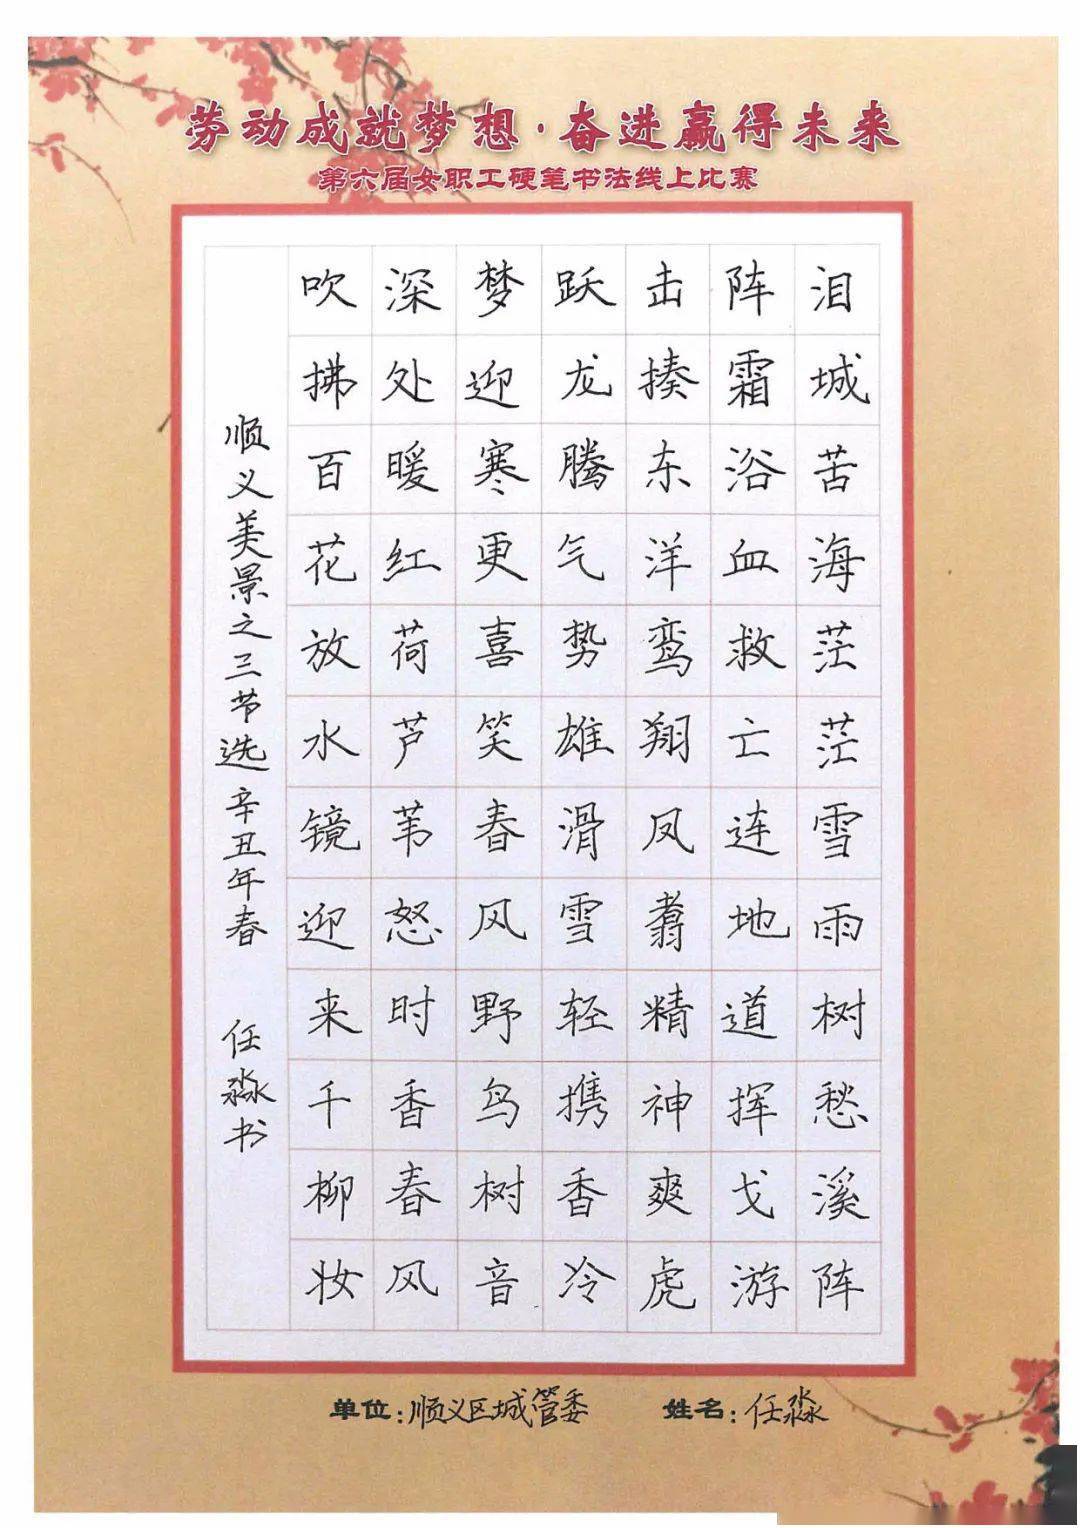 劳动成就梦想·奋进赢得未来
第六届女职工硬笔书法线上比赛
泪城苦海茫茫雪雨树愁溪阵
阵霜浴血救亡连地道挥戈游
击揍东洋鸾翔凤翥精神爽虎
跃龙腾气势雄滑雪轻携香冷
梦迎寒更喜笑春风野鸟树音
深处暖红荷芦苇怒时香春风
吹拂百花放水镜迎来千柳妆
顺义美景之三节选 辛丑年春 任淼书
单位:顺义区城管委 姓名:任淼